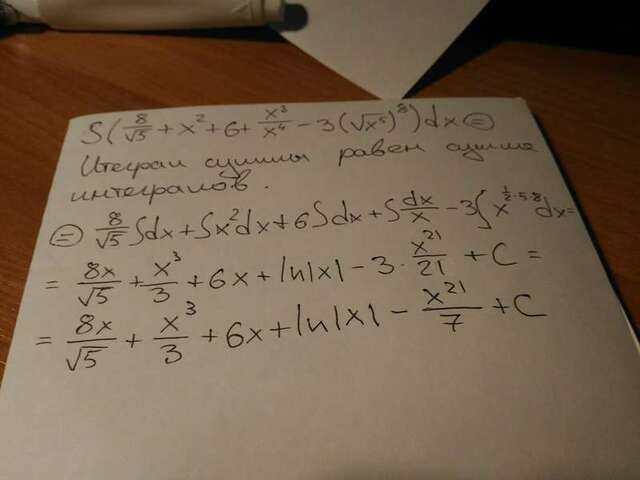 S(8/√5 + x² + 6 + x³/x⁴ - 3(√x⁵)⁸)dx =
Итеграл суммы равен сумме
интегралов.
= 8/√5 ∫dx + ∫x²dx + 6∫dx + ∫dx/x - 3∫x^(1/2·5·8)dx =
= 8x/√5 + x³/3 + 6x + ln|x| - 3 · x²¹/21 + C =
= 8x/√5 + x³/3 + 6x + ln|x| - x²¹/7 + C